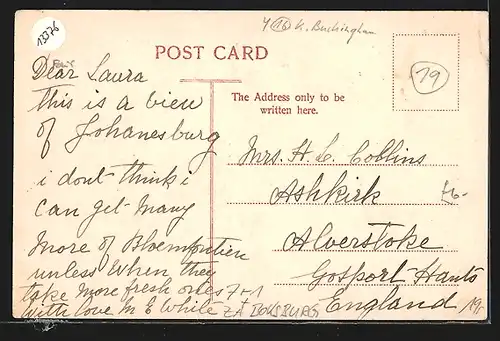 13376
4 (16) K. Buckingham
POST CARD
19
The Address only to be
written here.
Dear Laura
this is a view
of Johanesburg
i dont think i
can get many
more of Bloemfontien
unless when they
take more fresh ones
with love M E White
7+1
ZA BOKSBURG
Mrs. H. L. Collins
Ashkirk
Alverstoke
Gosport-Hants
England